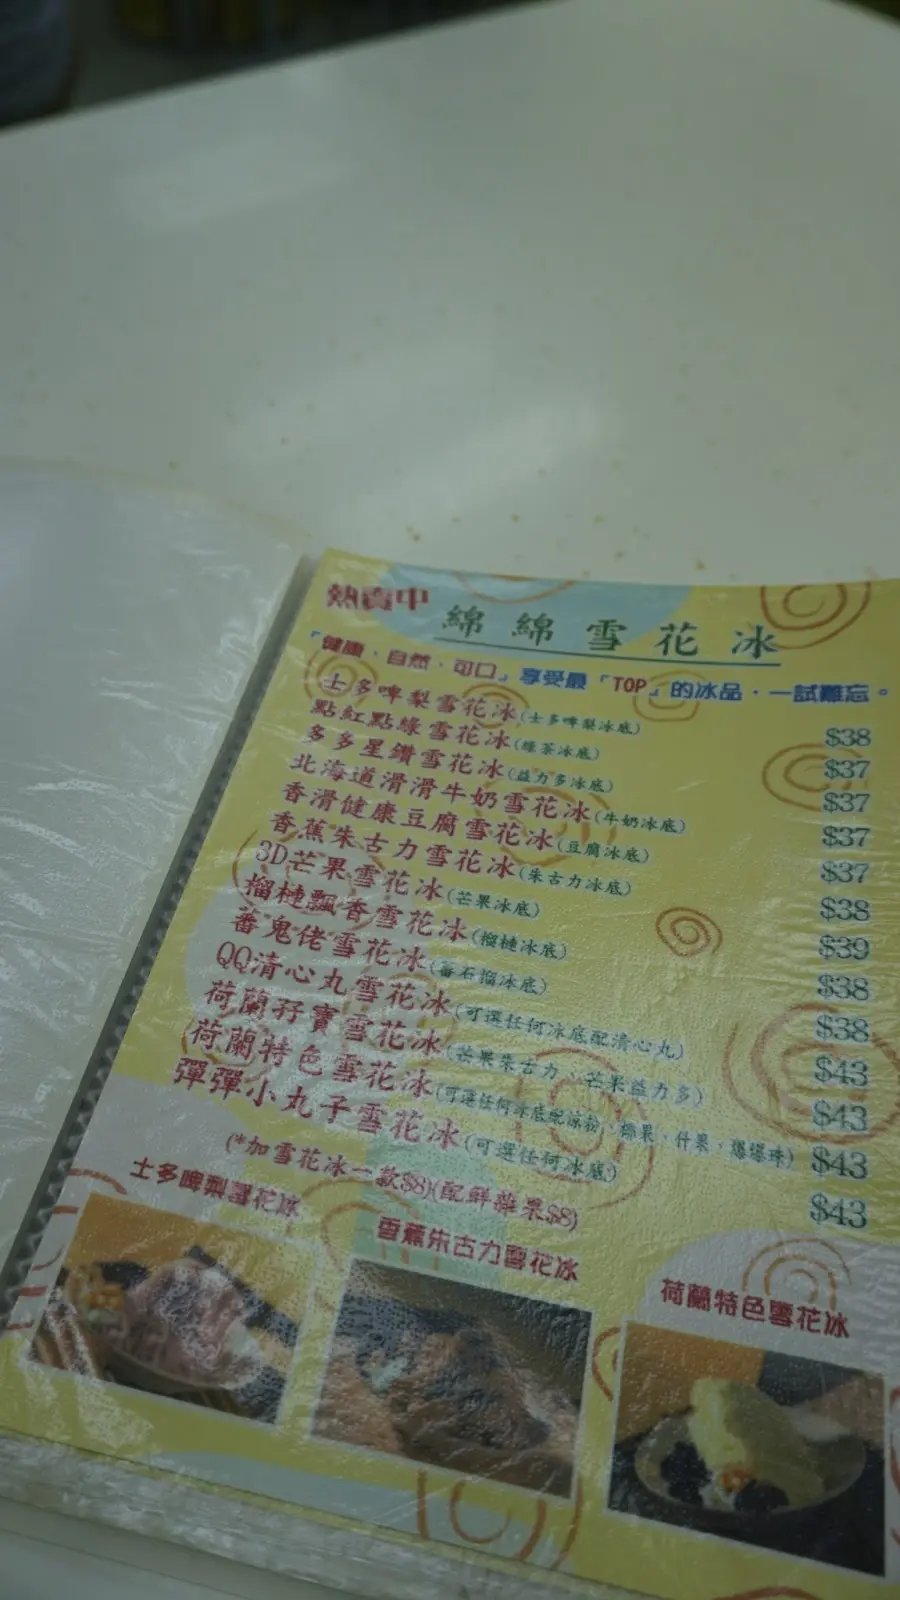 熱賣中 綿綿雪花冰
「健康、自然、可口」享受最「TOP」的冰品，一試難忘。
士多啤梨雪花冰(士多啤梨冰底) $38
點紅點綠雪花冰(綠茶冰底) $37
多多星鑽雪花冰(益力多冰底) $37
北海道滑滑牛奶雪花冰(牛奶冰底) $37
香滑健康豆腐雪花冰(豆腐冰底) $37
香蕉朱古力雪花冰(朱古力冰底) $38
3D芒果雪花冰(芒果冰底) $39
榴槤飄香雪花冰(榴槤冰底) $38
蕃鬼佬雪花冰(蕃石榴冰底) $38
QQ清心丸雪花冰(可選任何冰底配清心丸) $43
荷蘭孖寶雪花冰(芒果朱古力、芒果益力多) $43
荷蘭特色雪花冰(可選任何冰底配涼粉、椰果、什果、爆爆珠) $43
彈彈小丸子雪花冰(可選任何冰底) $43
(*加雪花冰一款$8)(配鮮雜果$8)
士多啤梨雪花冰
香蕉朱古力雪花冰
荷蘭特色雪花冰